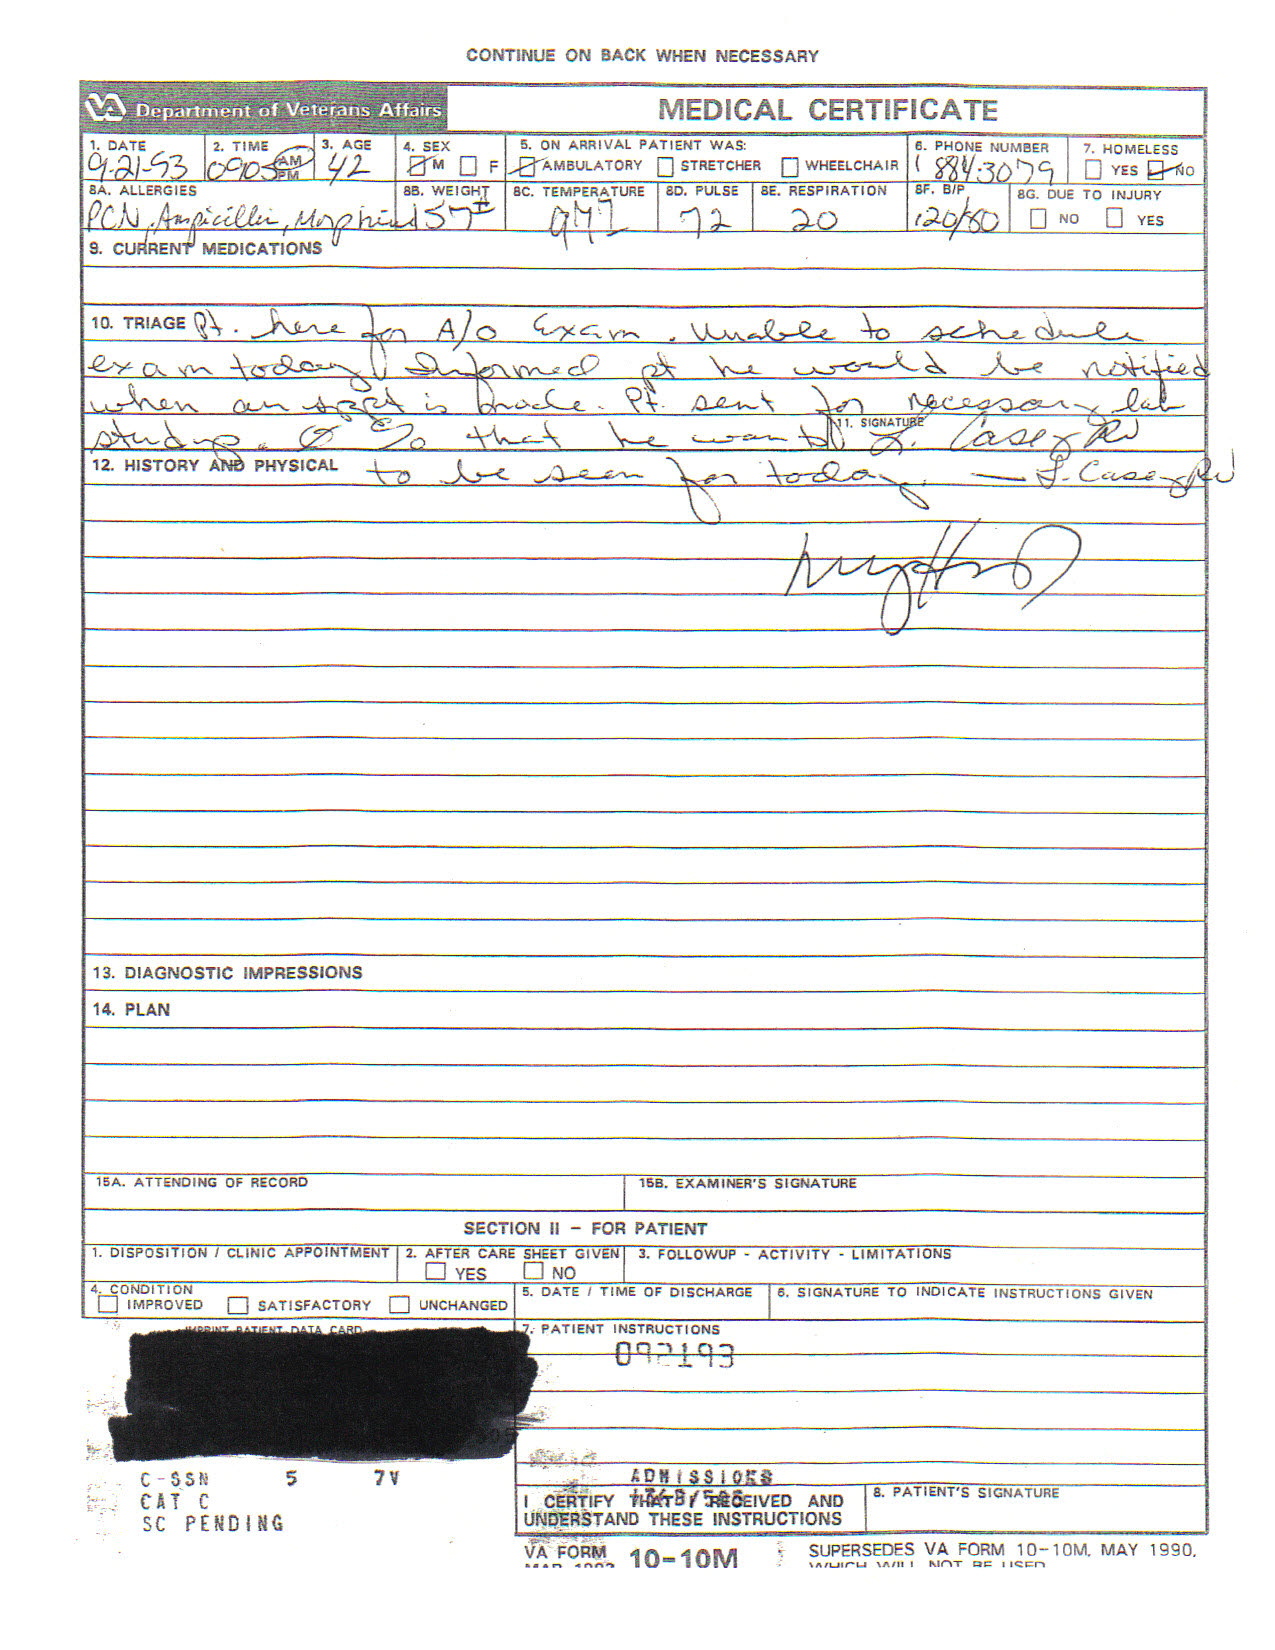 CONTINUE ON BACK WHEN NECESSARY
VA Department of Veterans Affairs MEDICAL CERTIFICATE
1. DATE 2. TIME 3. AGE 4. SEX 5. ON ARRIVAL PATIENT WAS: 6. PHONE NUMBER 7. HOMELESS
9-21-93 0905 AM PM 42 M F AMBULATORY STRETCHER WHEELCHAIR ( 884-3079 YES NO
8A. ALLERGIES 8B. WEIGHT 8C. TEMPERATURE 8D. PULSE 8E. RESPIRATION 8F. B/P 8G. DUE TO INJURY
PCN, Ampicillin, Morphine 157# 97 72 20 120/80 NO YES
9. CURRENT MEDICATIONS
10. TRIAGE Pt. here for A/O Exam. Unable to schedule
exam today. Informed pt he would be notified
when an appt is made. Pt. sent for necessary lab
11. SIGNATURE
studys. Ø c/o that he wants L. Casey RN
12. HISTORY AND PHYSICAL to be seen for today. — L. Casey RN
13. DIAGNOSTIC IMPRESSIONS
14. PLAN
15A. ATTENDING OF RECORD 15B. EXAMINER'S SIGNATURE
SECTION II - FOR PATIENT
1. DISPOSITION / CLINIC APPOINTMENT 2. AFTER CARE SHEET GIVEN 3. FOLLOWUP - ACTIVITY - LIMITATIONS
YES NO
4. CONDITION 5. DATE / TIME OF DISCHARGE 6. SIGNATURE TO INDICATE INSTRUCTIONS GIVEN
IMPROVED SATISFACTORY UNCHANGED
IMPRINT PATIENT DATA CARD 7. PATIENT INSTRUCTIONS
092193
C-SSN 5 7V ADMISSIONS
CAT C I CERTIFY THAT I RECEIVED AND 8. PATIENT'S SIGNATURE
SC PENDING UNDERSTAND THESE INSTRUCTIONS
VA FORM 10-10M SUPERSEDES VA FORM 10-10M, MAY 1990,
MAR 1992 WHICH WILL NOT BE USED